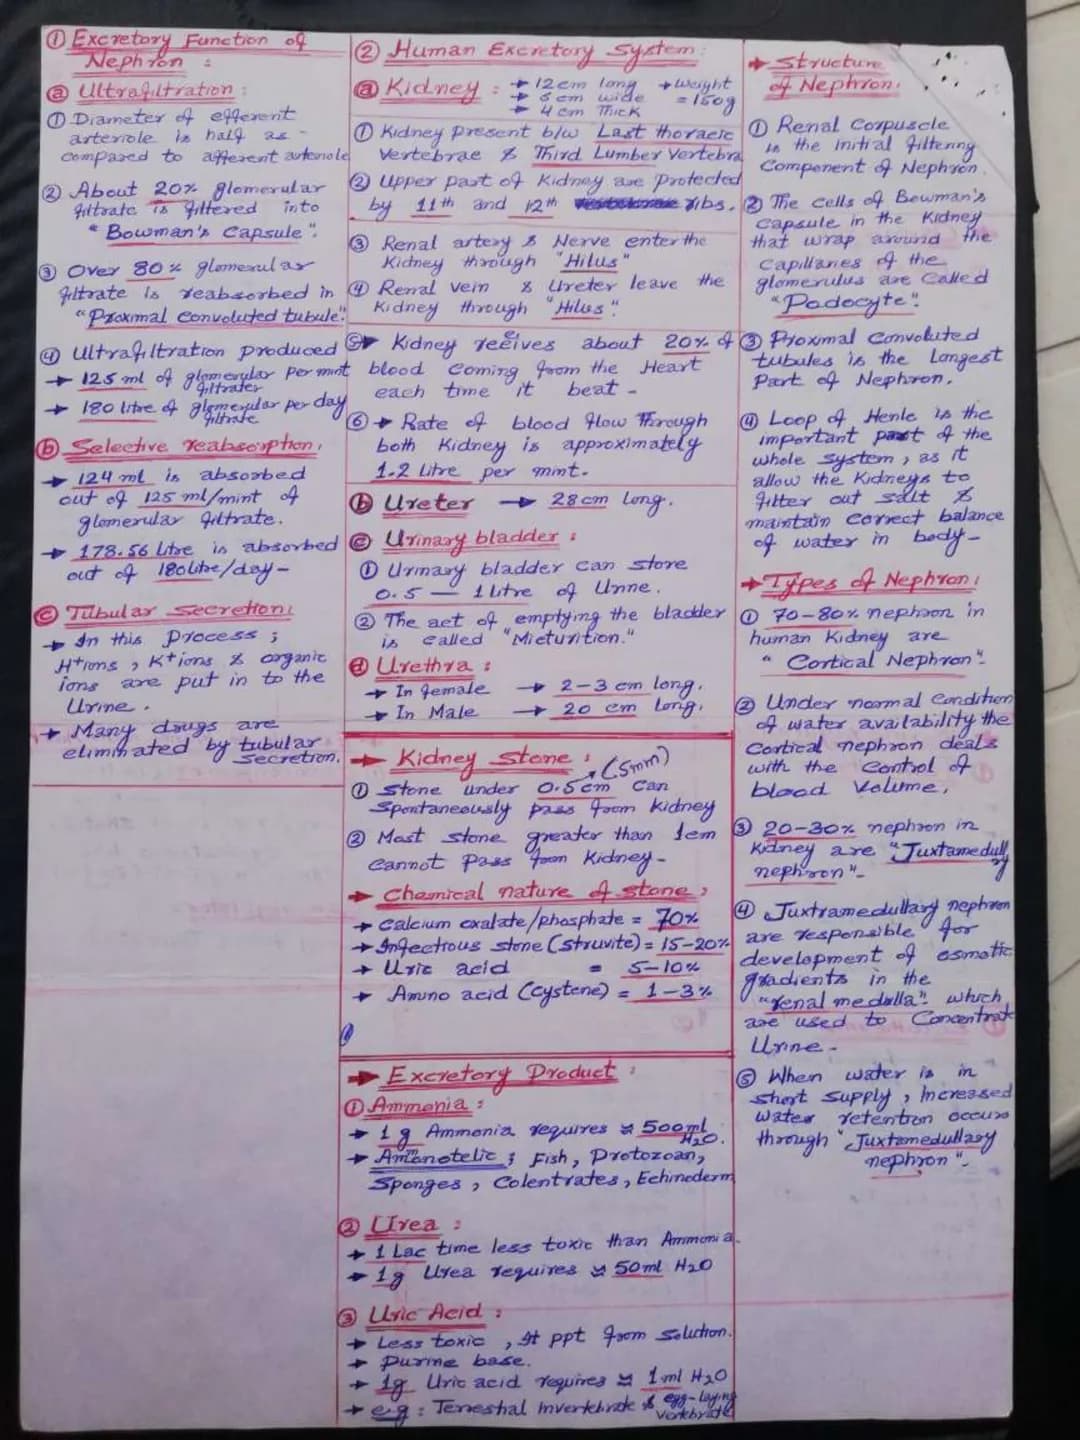 ① Excretory Function of
Nephron :
ⓐ Ultrafiltration :
① Diameter of efferent
arteriole is half as -
compared to afferent arteriole
② About 20% glomerular
filtrate is filtered into
" Bowman's Capsule ".
③ Over 80% glomerular
filtrate is reabsorbed in
"Proximal convoluted tubule".
④ Ultrafiltration produced
→ 125 ml of glomerular per mint
filtrater
→ 180 litre of glomerular per day
filtrate
ⓑ Selective reabsorption :
→ 124 ml is absorbed
out of 125 ml/mint of
glomerular filtrate.
→ 178.56 litre is absorbed
out of 180 litre/day -
ⓒ Tubular secretion :
→ In this Process ;
H+ions , K+ions & organic
ions are put in to the
Urine .
→ Many drugs are
eliminated by tubular
secretion.
② Human Excretory System :
ⓐ Kidney : → 12cm long → Weight
→ 6 cm wide = 150g
→ 4 cm Thick
① Kidney Present b/w Last thoracic
Vertebrae & Third Lumber Vertebra
② Upper part of Kidney are Protected
by 11th and 12th ribs.
③ Renal artery & Nerve enter the
Kidney through "Hilus"
④ Renal vein & Ureter leave the
Kidney through "Hilus".
⑤→ Kidney receives about 20% of
blood coming from the Heart
each time it beat -
⑥ → Rate of blood flow Through
both Kidney is approximately
1.2 Litre per mint.
ⓑ Ureter → 28 cm long.
ⓒ Urinary bladder :
① Urinary bladder can store
0.5 — 1 litre of Urine.
② The act of emptying the bladder
is called "Micturition."
ⓓ Urethra :
→ In female → 2-3 cm long.
→ In Male → 20 cm long.
→ Kidney Stone : (5mm)
① Stone under 0.5 cm can
Spontaneously pass from kidney
② Most stone greater than 1cm
cannot pass from Kidney -
→ Chemical nature of stone :
→ Calcium oxalate/phosphate = 70%
→ Infectious stone (struvite) = 15-20%
→ Uric acid = 5-10%
→ Amino acid (cystene) = 1-3%
→ Excretory Product :
① Ammonia :
→ 1 g Ammonia requires ≈ 500ml
H2O.
→ Ammonotelic ; Fish, Protozoan,
Sponges , Colentrates , Echinoderm
② Urea :
→ 1 Lac time less toxic than Ammonia.
→ 1g Urea requires ≈ 50ml H2O
③ Uric Acid :
→ Less toxic , It ppt from solution.
→ Purine base.
→ 1g Uric acid requires ≈ 1 ml H2O
→ e.g : Terrestrial invertebrate & egg-laying
vertebrate
→ Structure
of Nephron :
① Renal Corpuscle
is the initial filtering
Component of Nephron.
② The cells of Bowman's
Capsule in the Kidney
that wrap around the
Capillaries of the
glomerulus are called
"Podocyte".
③ Proximal Convoluted
tubules is the Longest
Part of Nephron.
④ Loop of Henle is the
important part of the
whole system, as it
allow the Kidneys to
filter out salt &
maintain correct balance
of water in body -
→ Types of Nephron :
① 70-80% nephron in
human Kidney are
" Cortical Nephron".
② Under normal condition
of water availability the
Cortical nephron deals
with the Control of
blood volume.
③ 20-30% nephron in
Kidney are "Juxtamedull
y
nephron".
④ Juxtramedullary nephron
are responsible for
development of osmotic
gradients in the
"renal medulla". which
are used to Concentrat
Urine -
⑤ When water is in
short supply, Increased
water retention occurs
through "Juxtamedullary
nephron".